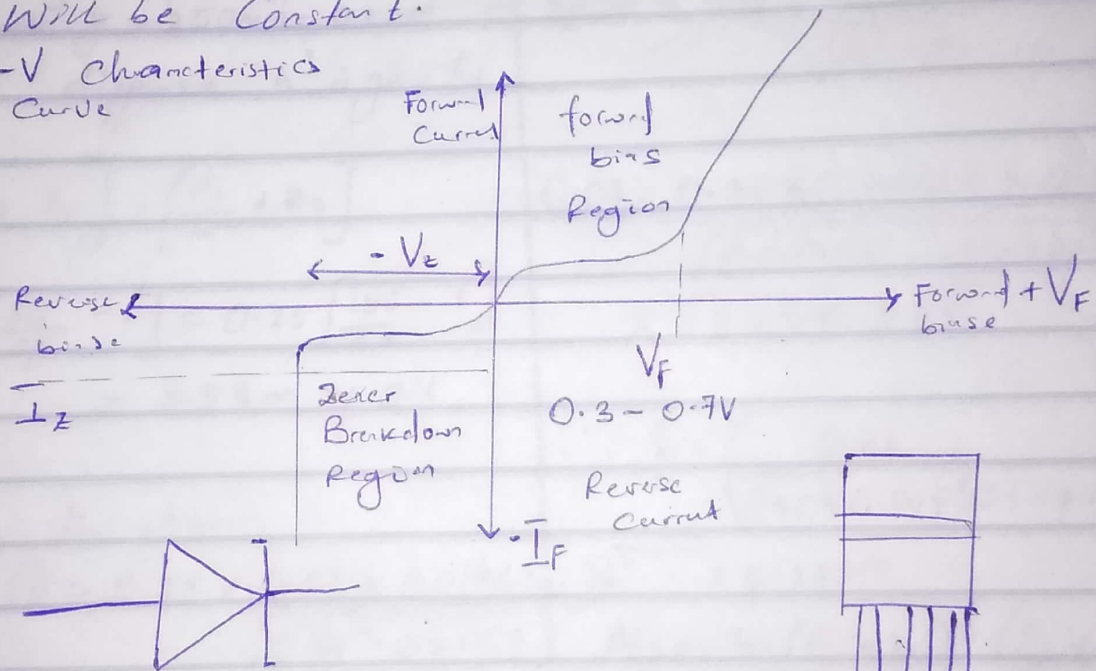 Will be Constant.
-V Characteristics
Curve
Forward
Current
forward
bias
Region
- Vz
Reverse
biase
Forward + VF
biase
VF
0.3 - 0.7V
Iz
Zener
Breakdown
Region
Reverse
Current
-IF